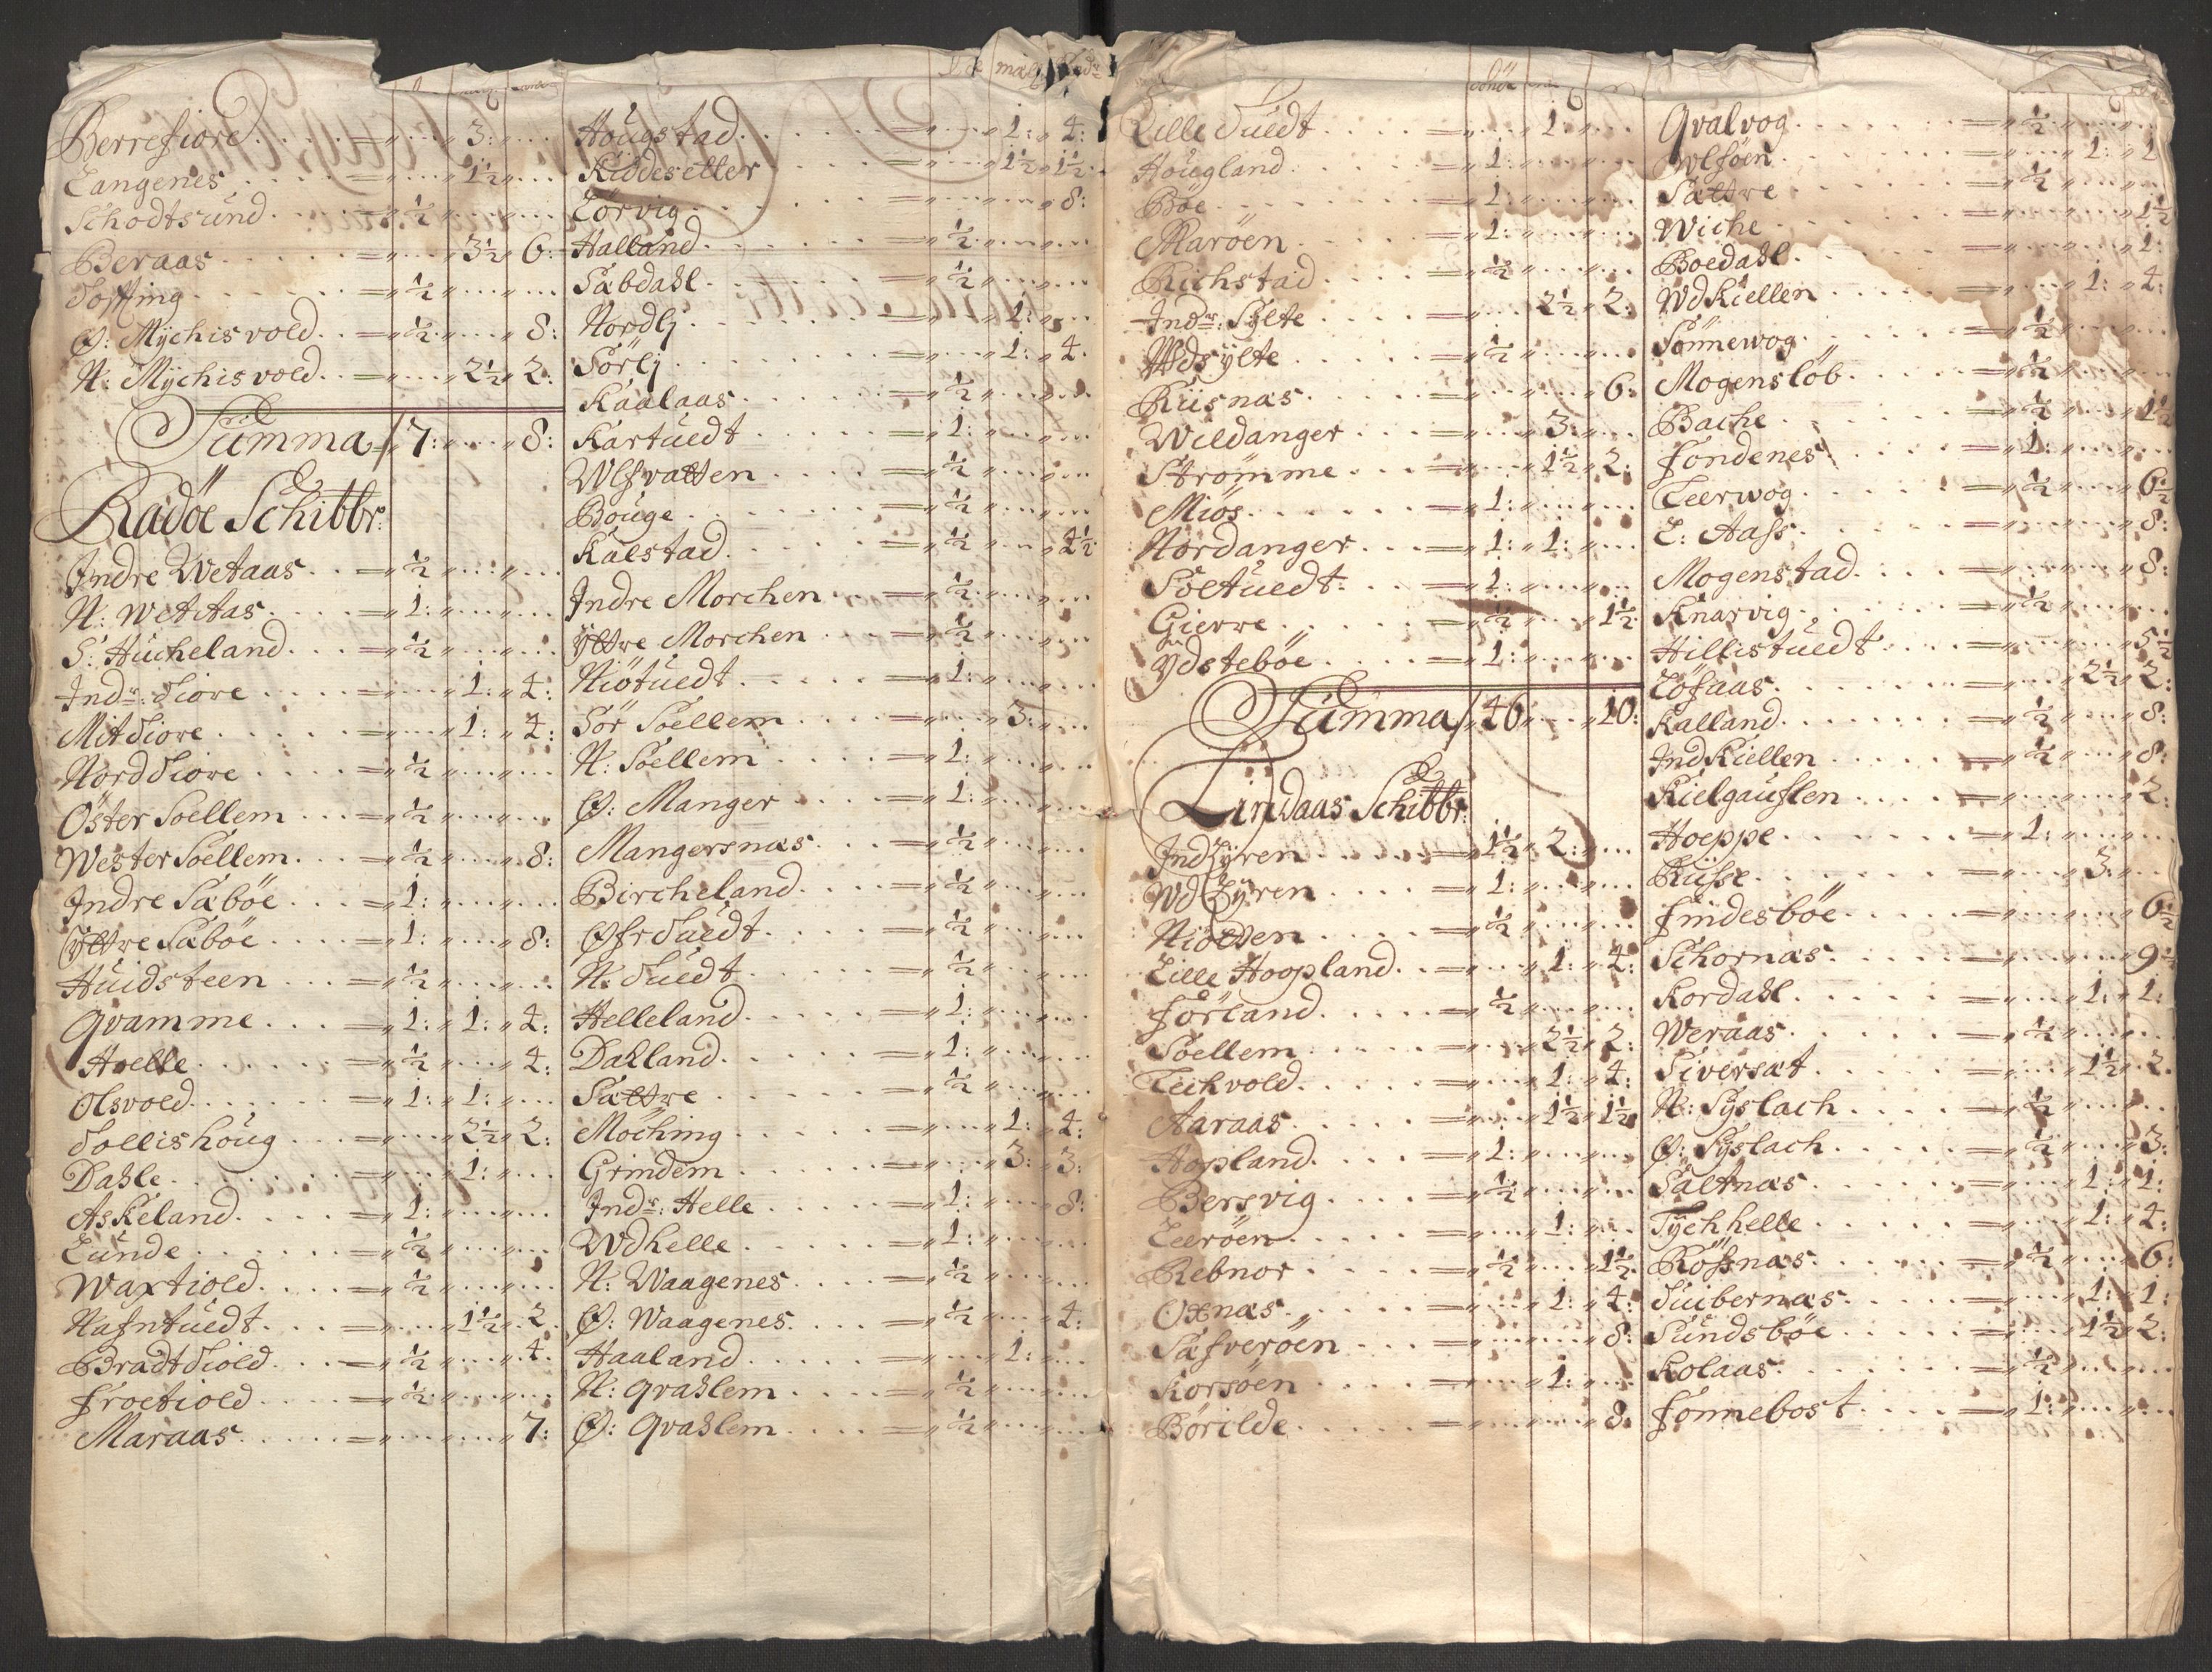 Berrefiord . . . . = „ . . . „ 3: „ . . .
Langenes . . . . = „ . . . „ 1½ „ . . .
Schodtsund . . . . = „ ½ „ . . . „ . . .
Beraas . . . . = „ . . . „ 3½ „ 6:
Torsting . . . . = „ ½ „ . . . „ . . .
Ø: Mÿchisvold . . = „ ½ „ . . . „ 8:
N: Mÿchisvold . . = „ . . . „ 2½ „ 2:
Summa / 7: „ . . . „ 8:
Radöe Schibbr:
Indre Wetaas . . = „ ½ „ . . . „ . . .
N: Wettas . . . . = „ 1: „ . . . „ . . .
S: Hucheland . . . = „ ½ „ . . . „ . . .
Indr: Tiore . . . . = „ . . . „ 1: „ 4:
Mit Tiore . . . . = „ . . . „ 1: „ 4:
Nord Tiore . . . . = „ ½ „ . . . „ . . .
Öster Soellem . . . = „ ½ „ . . . „ . . .
Wester Soellem . . . = „ ½ „ . . . „ 8:
Indre Sæböe . . . = „ 1: „ . . . „ . . .
Ÿttre Sæböe . . . = „ 1: „ . . . „ 8:
Huidsteen . . . = „ ½ „ . . . „ . . .
Qvamme . . . = „ 1: „ 1: „ 4:
Hoelle . . . . = „ ½ „ . . . „ 4:
Olsvold . . . . = „ 1: „ 1: „ . . .
Tollishoug . . . = „ . . . „ 2½ „ 2:
Dahle . . . . = „ . . . „ 1: „ . . .
Askeland . . . . = „ 1: „ . . . „ . . .
Lunde . . . . = „ ½ „ . . . „ . . .
Waxtiold . . . . = „ ½ „ . . . „ . . .
Nafntuedt . . . = „ . . . „ 1½ „ 2
Bradt Tiold . . . = „ ½ „ . . . „ 4.
Froetiold . . . . = „ ½ „ . . . „ . . .
Maraas . . . . = „ . . . „ . . . „ 7:
Hougstad . . . . = „ . . . „ 1: „ 4:
Riddesetter . . . . = „ . . . „ 1½ „ 1½
Lörvig . . . . „ . . . „ . . . „ 8:
Halland . . . . = „ ½ „ . . . „ . . .
Sæbdahl . . . . = „ ½ „ . . . „ . . .
Nordlj . . . . = „ . . . „ 1: „ . . .
Sörlj . . . . = „ . . . „ 1: „ 4.
Kaalaas . . . . = „ ½ „ . . . „ . . .
Kartuedt . . . . = „ 1: „ . . . „ . . .
Wlfvatten . . . . = „ ½ „ . . . „ . . .
Bouge . . . . = „ ½ „ . . . „ . . .
Kalstad . . . . = „ ½ „ . . . „ 4½
Indre Morchen . . = „ ½ „ . . . „ . . .
Ÿttre Morchen . . . = „ ½ „ . . . „ . . .
Niötuedt . . . . = „ 1: „ . . . „ . . .
Sör Soellem . . . . = „ . . . „ 3: „ . . .
N: Soellem . . . . = „ 1: „ . . . „ . . .
Ø: Manger . . . . = „ 1: „ . . . „ . . .
Mangersnæs . . . . = „ ½ „ . . . „ . . .
Bircheland . . . . = „ ½ „ . . . „ . . .
Øfr Tuedt . . . . = „ ½ „ . . . „ . . .
N: Tuedt . . . . = „ ½ „ . . . „ . . .
Helleland . . . . = „ 1: „ . . . „ . . .
Dahland . . . . = „ 1: „ . . . „ . . .
Sættre . . . . = „ ½ „ . . . „ . . .
Möching . . . . = „ . . . „ 1: „ 4:
Grindem . . . . = „ . . . „ 3: „ 3:
Indr: Helle . . . . = „ 1: „ . . . „ 8:
Wdhelle . . . . = „ 1: „ . . . „ . . .
N: Waagenes . . . . = „ ½ „ . . . „ . . .
Ø: Waagenes . . . . = „ ½ „ . . . „ 4:
Haaland . . . . = „ . . . „ 1: „ . . .
N: Qvahlem . . . . = „ ½ „ . . . „ . . .
Ø: Qvahlem . . . . = „ ½ „ . . . „ . . .
Lille Tuedt . . . . = „ . . . „ 1: „ . . .
Hougland . . . . = „ 1: „ . . . „ . . .
Böe . . . . = „ 1: „ . . . „ . . .
Maröen . . . . = „ 1: „ . . . „ . . .
Richstad . . . . = „ ½ „ . . . „ . . .
Indr: Sylte . . . . = „ . . . „ 2½ „ 2:
Wdsylte . . . . = „ ½ „ . . . „ . . .
Riisnæs . . . . = „ . . . „ . . . „ 6:
Wildanger . . . . = „ . . . „ 3: „ . . .
Strömme . . . . = „ . . . „ 1½ „ 2:
Miös . . . . = „ 1: „ . . . „ . . .
Nordanger . . . = „ 1: „ 1: „ . . .
Soltuedt . . . = „ 1: „ . . . „ . . .
Gierre . . . . = „ ½ „ . . . „ 1½
Ydsteböe . . . . = „ 1: „ . . . „ . . .
Summa / 46 „ . . . „ 10:
Lindaas Schibbr:
Ind Lÿren . . . . = „ 1½ „ 2: „ . . .
Wd Lÿren . . . . = „ 1: „ . . . „ . . .
Niölden . . . . = „ ½ „ . . . „ . . .
Lille Hoopland . . = „ . . . „ 1: „ 4:
Förland . . . . = „ ½ „ . . . „ . . .
Soellem . . . . = „ . . . „ 2½ „ 2:
Leekvold . . . . = „ . . . „ 1: „ 4:
Aaraas . . . . = „ . . . „ 1½ „ 1½
Hopland . . . . = „ 1: „ . . . „ . . .
Bersvig . . . . = „ ½ „ . . . „ . . .
Leeröen . . . . = „ . . . „ 1: „ . . .
Rebnor . . . . = „ ½ „ . . . „ 1½
Oxnæs . . . . = „ . . . „ 1: „ 4:
Sæfveröen . . . . = „ . . . „ . . . „ 8:
Korsöen . . . . = „ . . . „ 1: „ . . .
Börilde . . . . = „ . . . „ . . . „ 8:
Qvalvog . . . . = „ ½ „ . . . „ . . .
Wlföen . . . . = „ . . . „ 1: „ 1
Sættre . . . . = „ ½ „ . . . „ . . .
Wiche . . . . = „ . . . „ . . . „ 1½
Boedahl . . . . = „ . . . „ . . . „ 1:
Wdkiellen . . . . = „ . . . „ 1: „ 4:
Sönnewog . . . . = „ ½ „ . . . „ . . .
Mogenslöb . . . . = „ ½ „ . . . „ . . .
Bache . . . . = „ ½ „ . . . „ 1½
Fondenes . . . . = „ 1: „ . . . „ . . .
Leerwog . . . . = „ ½ „ . . . „ 6½
L: Aass . . . . = „ . . . „ . . . „ 8:
Mogenstad . . . . = „ . . . „ . . . „ 8:
Knarvig . . . . = „ ½ „ . . . „ . . .
Hillistuedt . . . . = „ . . . „ . . . „ 5½
Löfaas . . . . = „ . . . „ 2½ „ 2:
Kalland . . . . = „ ½ „ . . . „ 8:
Indkiellen . . . . = „ ½ „ . . . „ 8:
Kielgauflen . . . . = „ . . . „ . . . „ 2:
Hoeppe . . . . = „ 1: „ . . . „ . . .
Riisse . . . . = „ . . . „ 3: „ . . .
Findesböe . . . . = „ . . . „ . . . „ 6½
Schornæs . . . . = „ . . . „ . . . „ 9½
Kordahl . . . . = „ . . . „ 1: „ 1:
Weraas . . . . = „ ½ „ . . . „ . . .
Siversæt . . . . = „ . . . „ 1½ „ 2.
N: Syslach . . . . = „ ½ „ . . . „ . . .
Ø: Syslach . . . . = „ ½ „ . . . „ 3:
Sæltnæs . . . . = „ . . . „ 1: „ 1:
Tÿchhelle . . . . = „ . . . „ 1: „ 4:
Rössnæs . . . . = „ ½ „ . . . „ 6:
Tuibernæs . . . . = „ . . . „ 1: „ 1:
Sundsböe . . . . = „ . . . „ 1½ „ 2:
Kolaas . . . . = „ ½ „ . . . „ . . .
Fönnebost . . . . = „ 1: „ . . . „ . . .